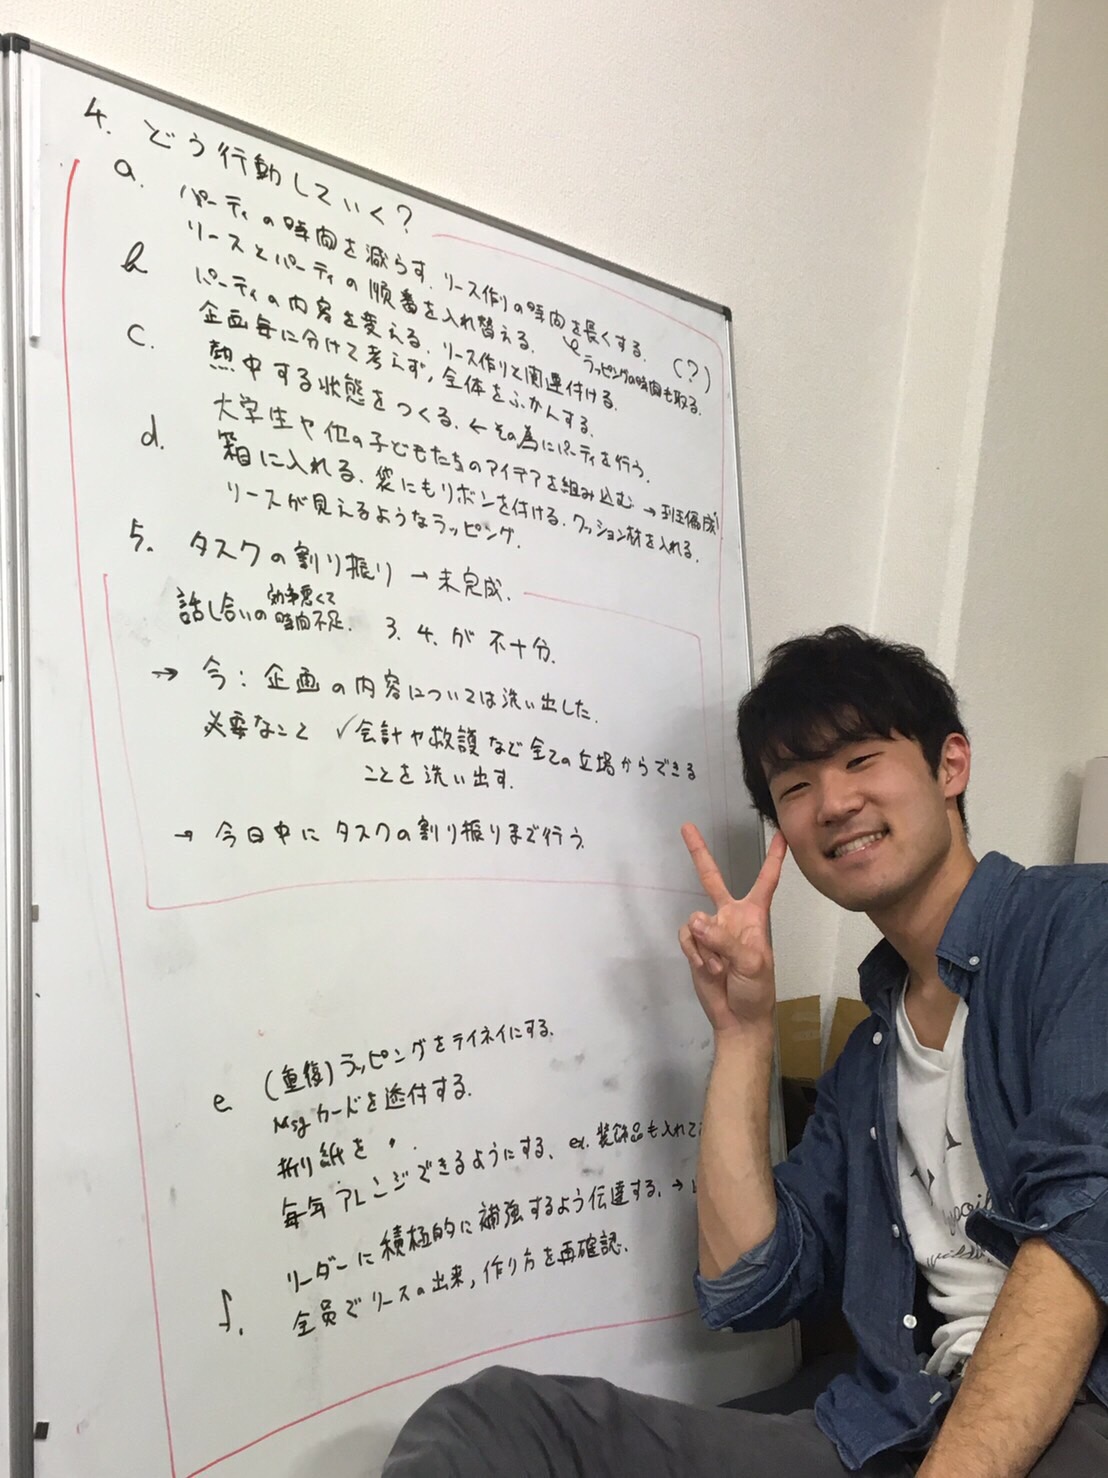 4. どう行動していく?
a. パーティの時間を減らす. リース作りの時間を長くする. (?)
ラッピングの時間も取る.
リースとパーティの順番を入れ替える.
b パーティの内容を変える. リース作りと関連付ける.
企画毎に分けて考えず, 全体をふかんする.
c. 熱中する状態をつくる. ← その為にパーティを行う.
大学生や他の子どもたちのアイデアを組み込む → 班編成
d. 箱に入れる. 袋にもリボンを付ける. クッション材を入れる.
リースが見えるようなラッピング.
5. タスクの割り振り → 未完成.
話し合いの効率悪くて時間不足. 3. 4. が 不十分.
→ 今: 企画の内容については洗い出した.
必要なこと ✓会計や救護など全ての立場からできる
ことを洗い出す.
→ 今日中にタスクの割り振りまで行う.
e. (重複) ラッピングをテイネイにする.
Msgカードを添付する.
折り紙を 〃 .
毎年アレンジできるようにする. ex. 装飾品も入れて
リーダーに積極的に補強するよう伝達する. →
f. 全員でリースの出来, 作り方を再確認.